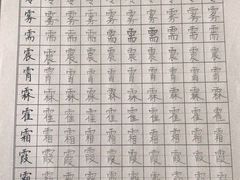 雾雾雾雾雾雾雾雾雾
需需需需需需需需需
震震震震震震震震震
霄霄霄霄霄霄霄霄霄
霖霖霖霖霖霖霖霖霖
霍霍霍霍霍霍霍霍霍
霜霜霜霜霜霜霜霜霜
霞霞霞霞霞霞霞霞霞